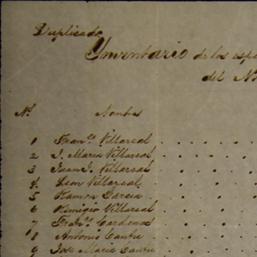 Duplicado
Inventario de los espe
del N
Nº Nombres
1 Franco Villarreal
2 J. Maria Villarreal
3 Juan J. Villarreal
4 Leon Villarreal
5 Ramon Garcia
6 Remigio Villarreal
7 Franco Cardenas
8 Antonio Cantu
9 Jose Maria Cantu